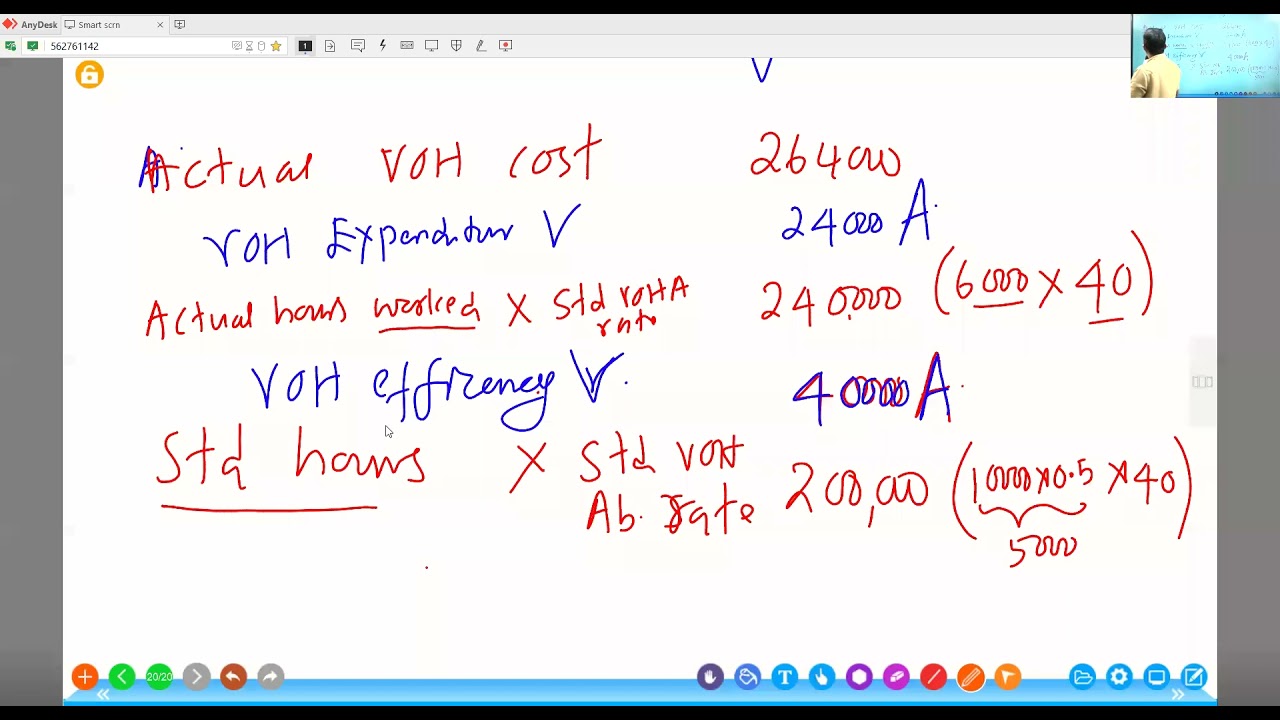 AnyDesk Smart scrn ×
562761142 1
V
Actual VOH cost 264000
VOH Expenditur V 24000 A.
Actual hours worked × Std VOHA rate 240,000 (6000 × 40)
VOH effriency V. 40000 A.
Std hours × Std VOH Ab. rate 200,000 (10000×0.5 × 40)
5000
20/20 T